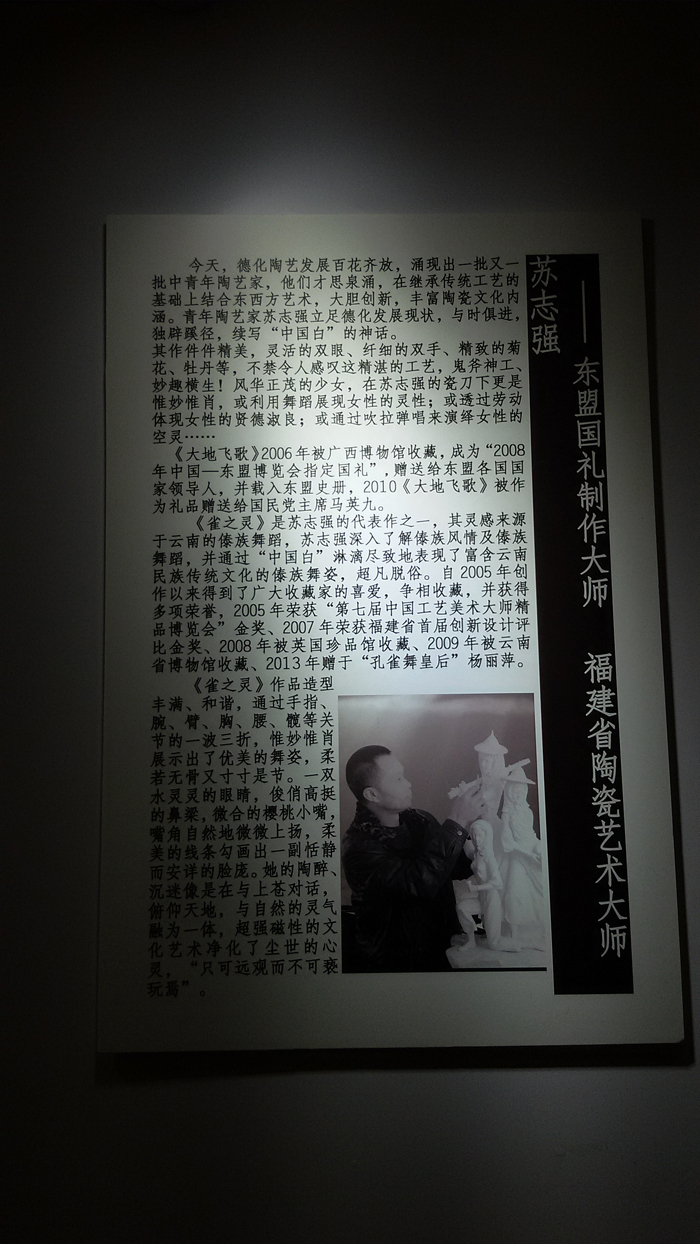 苏志强
——东盟国礼制作大师 福建省陶瓷艺术大师
今天，德化陶艺发展百花齐放，涌现出一批又一
批中青年陶艺家，他们才思泉涌，在继承传统工艺的
基础上结合东西方艺术，大胆创新，丰富陶瓷文化内
涵。青年陶艺家苏志强立足德化发展现状，与时俱进，
独辟蹊径，续写“中国白”的神话。
其作件件精美，灵活的双眼、纤细的双手、精致的菊
花、牡丹等，不禁令人感叹这精湛的工艺，鬼斧神工、
妙趣横生！风华正茂的少女，在苏志强的瓷刀下更是
惟妙惟肖，或利用舞蹈展现女性的灵性；或透过劳动
体现女性的贤德淑良；或通过吹拉弹唱来演绎女性的
空灵……
《大地飞歌》2006年被广西博物馆收藏，成为“2008
年中国—东盟博览会指定国礼”，赠送给东盟各国国
家领导人，并载入东盟史册，2010《大地飞歌》被作
为礼品赠送给国民党主席马英九。
《雀之灵》是苏志强的代表作之一，其灵感来源
于云南的傣族舞蹈，苏志强深入了解傣族风情及傣族
舞蹈，并通过“中国白”淋漓尽致地表现了富含云南
民族传统文化的傣族舞姿，超凡脱俗。自2005年创
作以来得到了广大收藏家的喜爱，争相收藏，并获得
多项荣誉，2005年荣获“第七届中国工艺美术大师精
品博览会”金奖、2007年荣获福建省首届创新设计评
比金奖、2008年被英国珍品馆收藏、2009年被云南
省博物馆收藏、2013年赠于“孔雀舞皇后”杨丽萍。
《雀之灵》作品造型
丰满、和谐，通过手指、
腕、臂、胸、腰、髋等关
节的一波三折，惟妙惟肖
展示出了优美的舞姿，柔
若无骨又寸寸是节。一双
水灵灵的眼睛，俊俏高挺
的鼻梁，微合的樱桃小嘴，
嘴角自然地微微上扬，柔
美的线条勾画出一副恬静
而安详的脸庞。她的陶醉、
沉迷像是在与上苍对话，
俯仰天地，与自然的灵气
融为一体，超强磁性的文
化艺术净化了尘世的心
灵，“只可远观而不可亵
玩焉”。